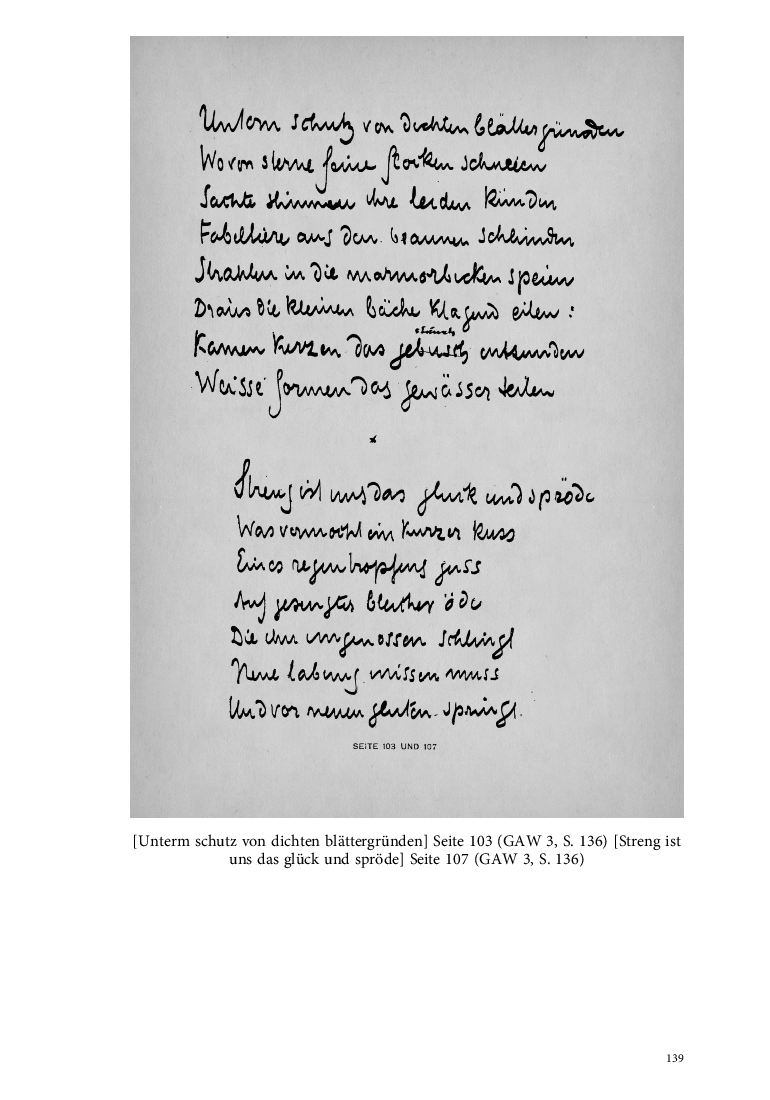 Unterm schutz von dichten blättergründen
Wo von sterne feine flocken schneien
Sachte stimmen ihre leiden künden
Fabeltiere aus den braunen schlünden
Strahlen in die marmorbecken speien
Draus die kleinen bäche klagend eilen :
sträuch
Kamen kerzen das gebüsch entzünden
Weisse formen das gewässer teilen
*
Streng ist uns das glück und spröde
Was vermocht ein kurzer kuss
Eines regentropfens guss
Auf gesengter bleicher öde
Die ihn ungenossen schlingt
Neue labung missen muss
Und vor neuen gluten springt.
SEITE 103 UND 107
[Unterm schutz von dichten blättergründen] Seite 103 (GAW 3, S. 136) [Streng ist
uns das glück und spröde] Seite 107 (GAW 3, S. 136)
139